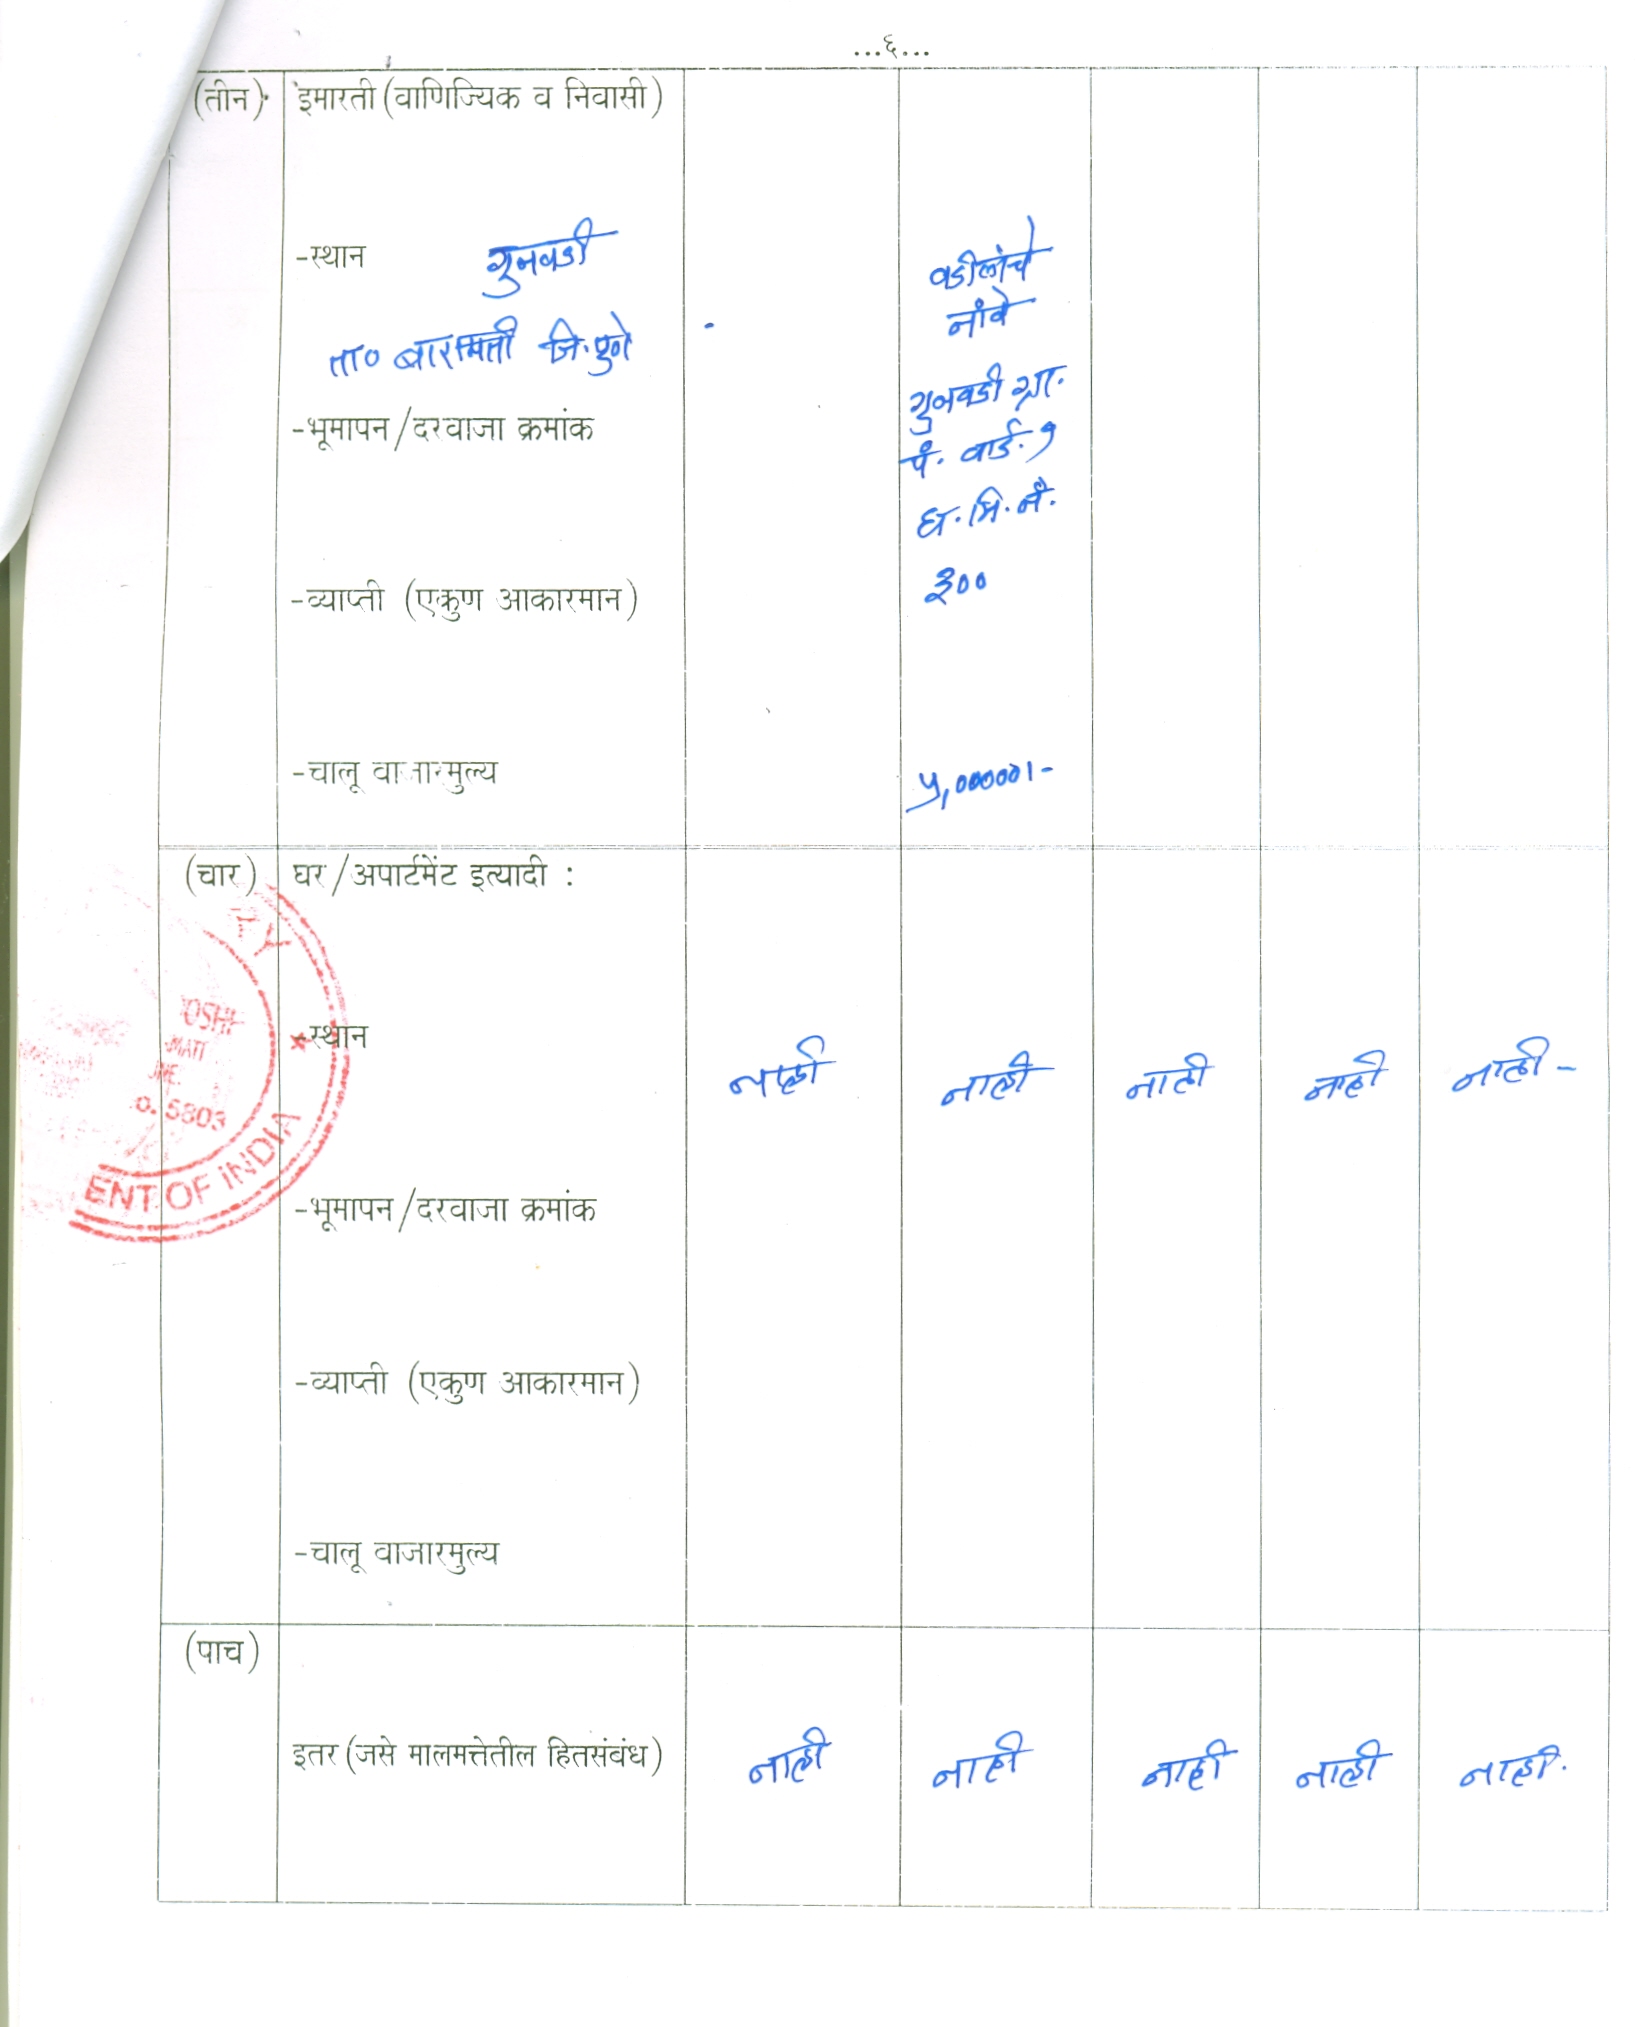 ...६...
(तीन) इमारती (वाणिज्यिक व निवासी)
-स्थान गुनवडी वडीलांचे
नांवे
ता० बारामती जि. पुणे
गुनवडी ग्रा.
-भूमापन/दरवाजा क्रमांक
पं. वार्ड. १
घ. मि. नं.
-व्याप्ती (एकुण आकारमान) ३००
-चालू बाजारमुल्य ५,०००००/-
(चार) घर/अपार्टमेंट इत्यादी :
-स्थान
नाही नाही नाही नाही नाही -
-भूमापन/दरवाजा क्रमांक
-व्याप्ती (एकुण आकारमान)
-चालू बाजारमुल्य
(पाच)
इतर (जसे मालमत्तेतील हितसंबंध) नाही नाही नाही नाही नाही.
OSHI
MATI
o. 5803
ENT OF INDIA